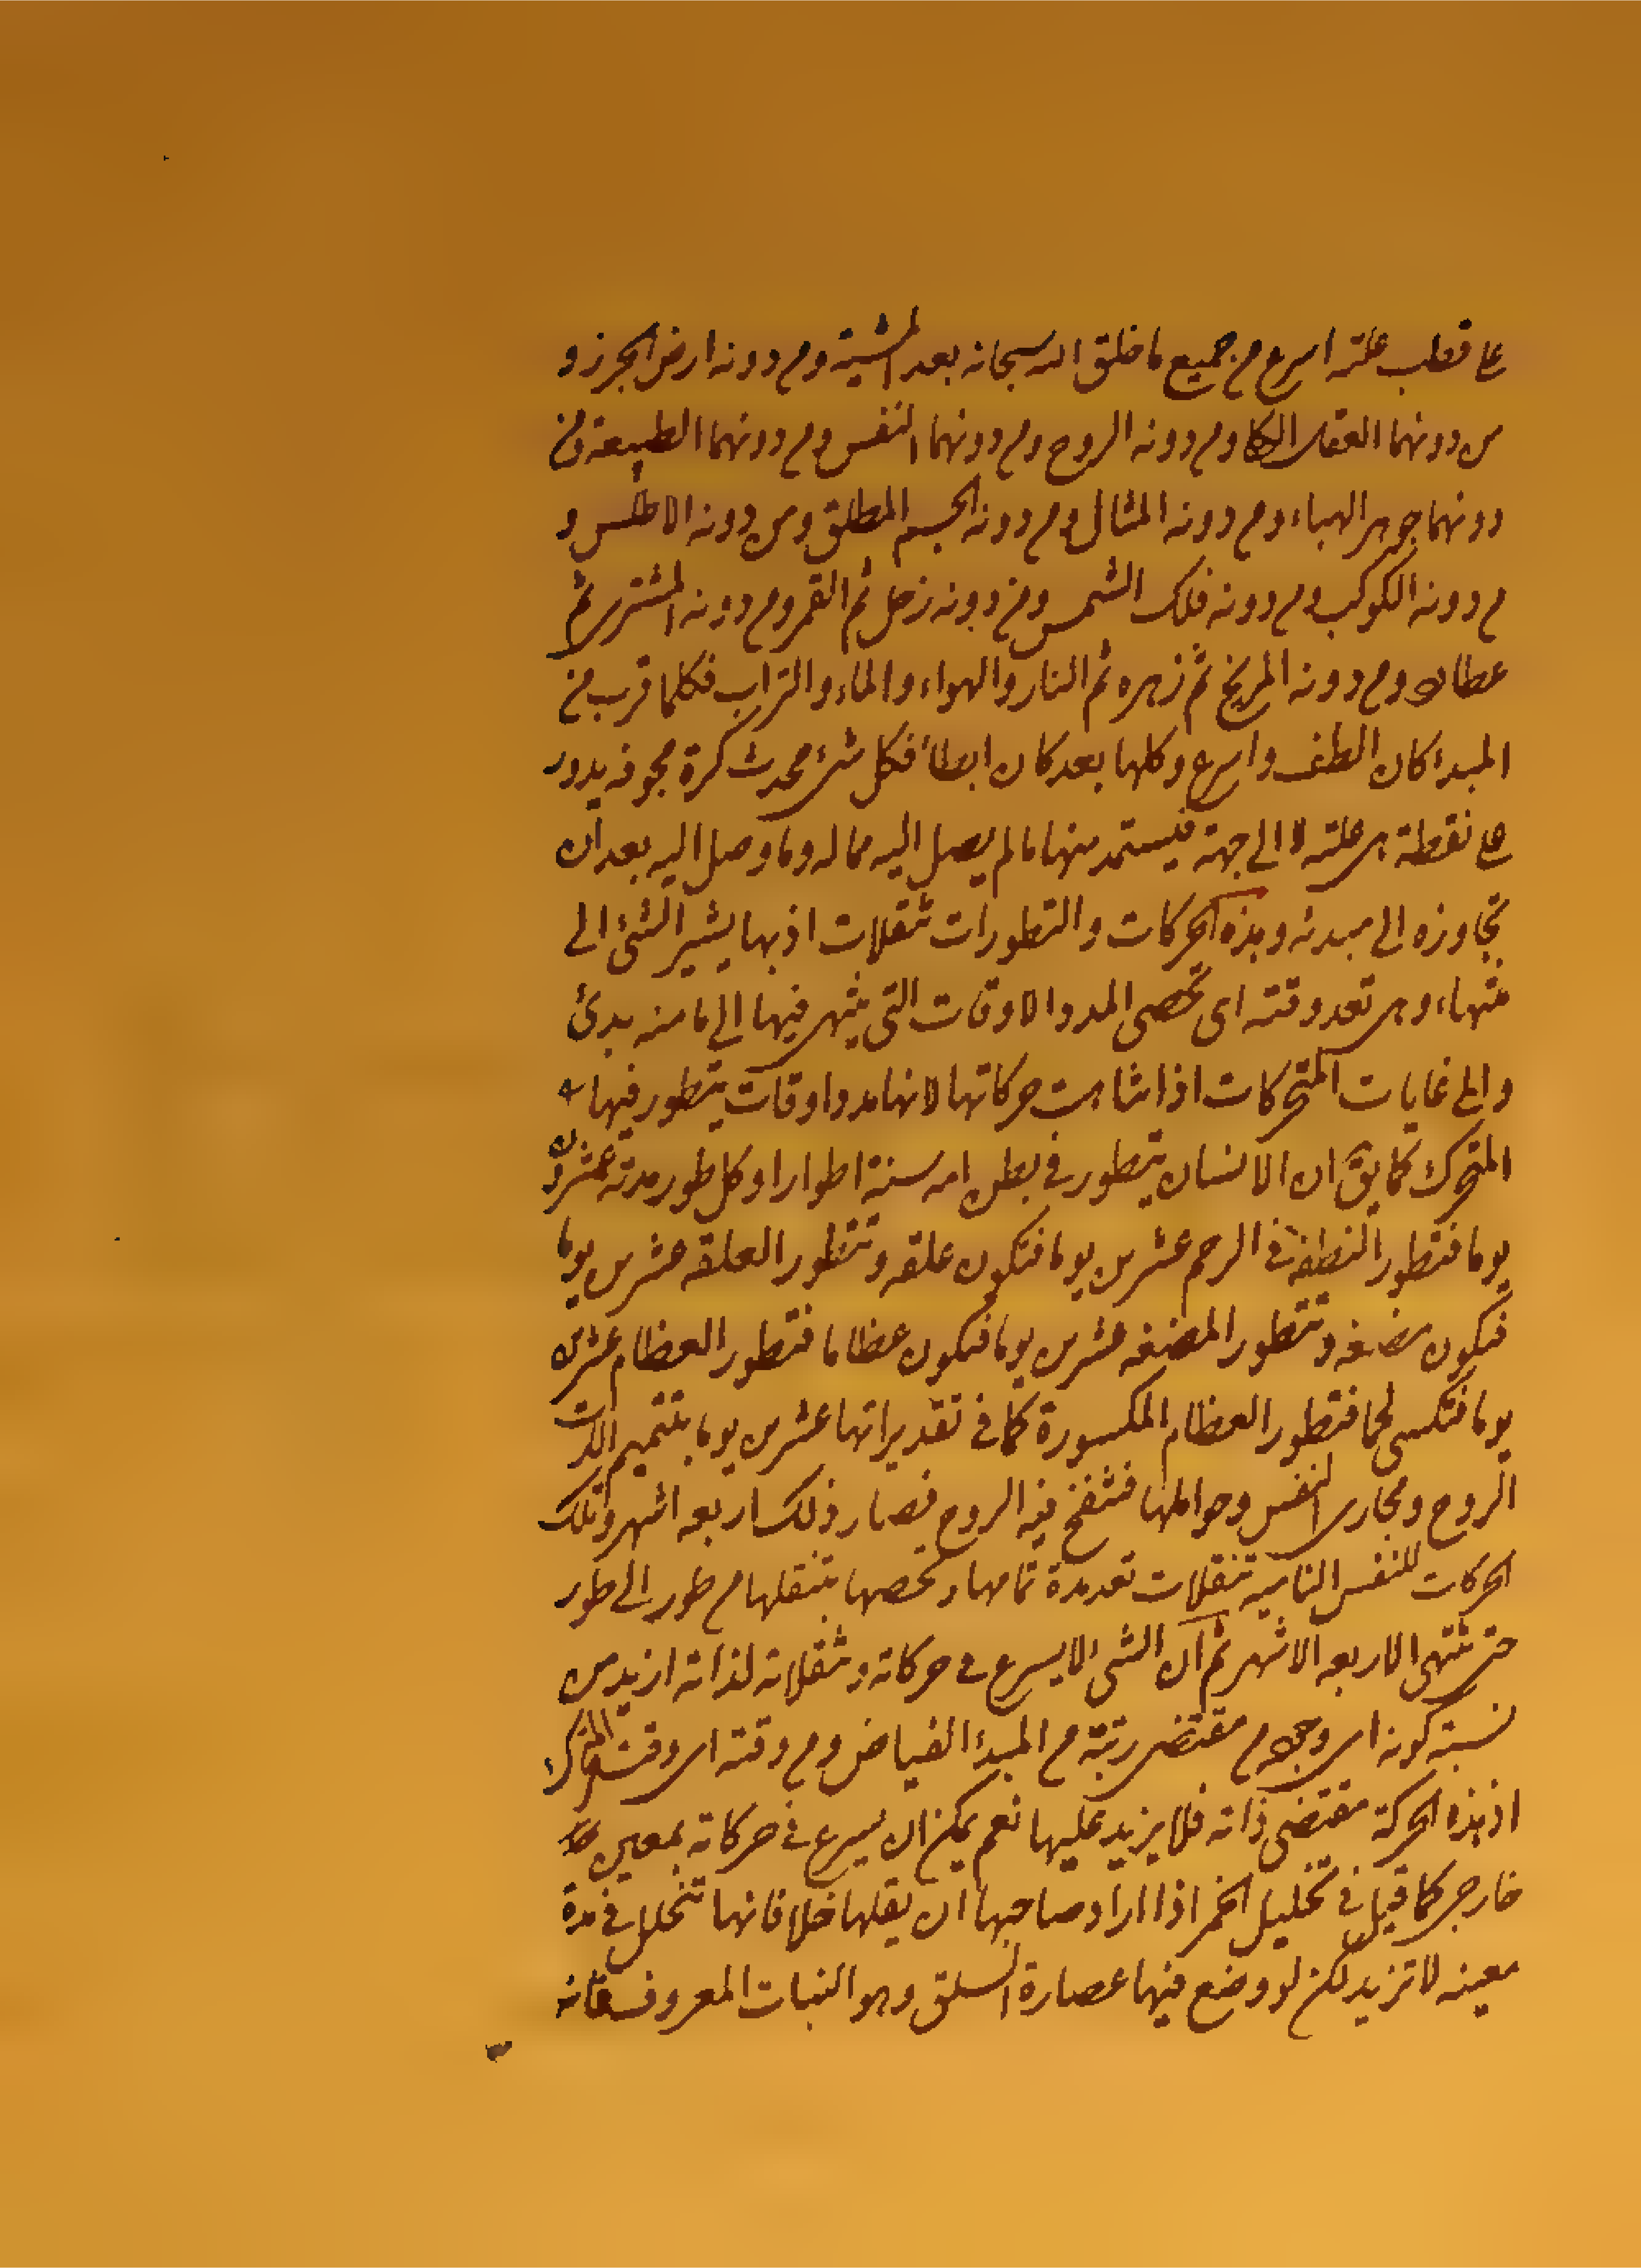 على قطب علته اسرع من جميع ما خلق الله سبحانه بعد المشية ومن دونه ارض الجرز و
من دونهما العقل الكلي ومن دونه الروح ومن دونهما النفس ومن دونهما الطبيعة ومن
دونهما جوهر الهباء ومن دونه المثال ومن دونه الجسم المطلق ومن دونه الاطلس و
من دونه الكوكب ومن دونه فلك الشمس ومن دونه زحل ثم القمر ومن دونه المشتري ثم
عطارد ومن دونه المريخ ثم زهره ثم النار والهواء والماء والتراب فكلما قرب من
المبدا كان الطف واسرع وكلها بعد كان ابطأ فكل شئ محدث كرة مجوفه يدور
على نقطة هي علته لا الى جهة فيستمد منها ما لم يصل اليه مما له وما وصل اليه بعد ان
تجاوزه الى مبدئه وهذه الحركات والتطورات تنقلات اذ بها يشير الشئ الى
منتهاء وهي تعد وقته اى تحصى المدد والاوقات التي ينتهي فيها الى ما منه بدئ
والى غايات المتحركات اذا تشابهت حركاتها لانها مدد واوقات يتطور فيها
المتحرك كما يق ان الانسان يتطور في بطن امه ستة اطوارا وكل طور مدته عشرون
يوما فتطور النطفة في الرحم عشرين يوما فتكون علقه وتتطور العلقه عشرين يوما
فتكون مضغه وتتطور المضغه عشرين يوما فتكون عظاما فتطور العظام عشرين
يوما فتكسى لحما فتطور العظام المكسورة كما في تقديراتها عشرين يوما بتتميم الات
الروح ومجارى النفس وحواملها فتنفخ فيه الروح فصار ذلك اربعه اشهر وتلك
الحركات للنفس الناميه تنقلات تعد مدة تمامها وتحصها بتنقلها من طور الى طور
حتى تنتهى الاربعه الاشهر ثم ان الشئ لا يسرع في حركاته وتنقلاته لذاته ازيد من
نسبة كونه اى وجوده من مقتضى رتبته من المبدأ الفياض ومن وقته اى وقت المتحرك
اذ هذه الحركة مقتضى ذاته فلا يزيد عليها نعم يمكن ان يسرع في حركاته بمعين
خارجي كما قيل في تخليل الخمر اذا اراد صاحبها ان يقلبها خلا فانها تنخلل في مدة
معينه لا تزيد لكن لو وضع فيها عصارة السلق وهو النبات المعروف فانه